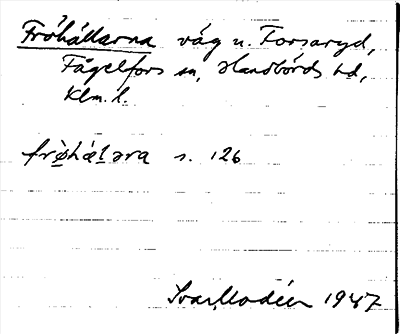 Fröhällarna väg u. Forsaryd,
Fågelfors sn, Handbörds hd,
Klm. l.
frø̀hæ̀l̠ǝra s. 126
Ivar Modéer 1947